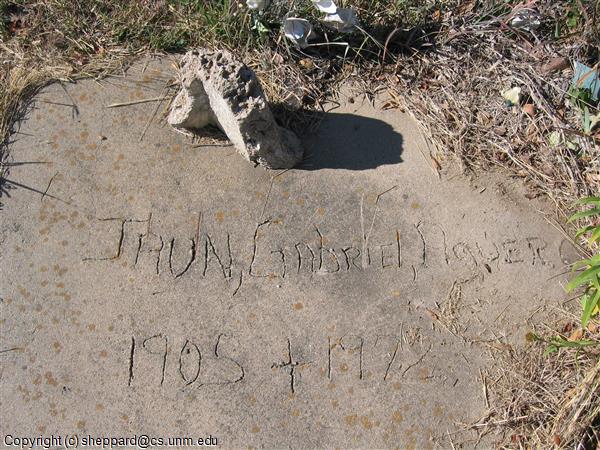 JHUN, Gabriel, Nguer
1905 + 1972
Copyright (c) sheppard@cs.unm.edu